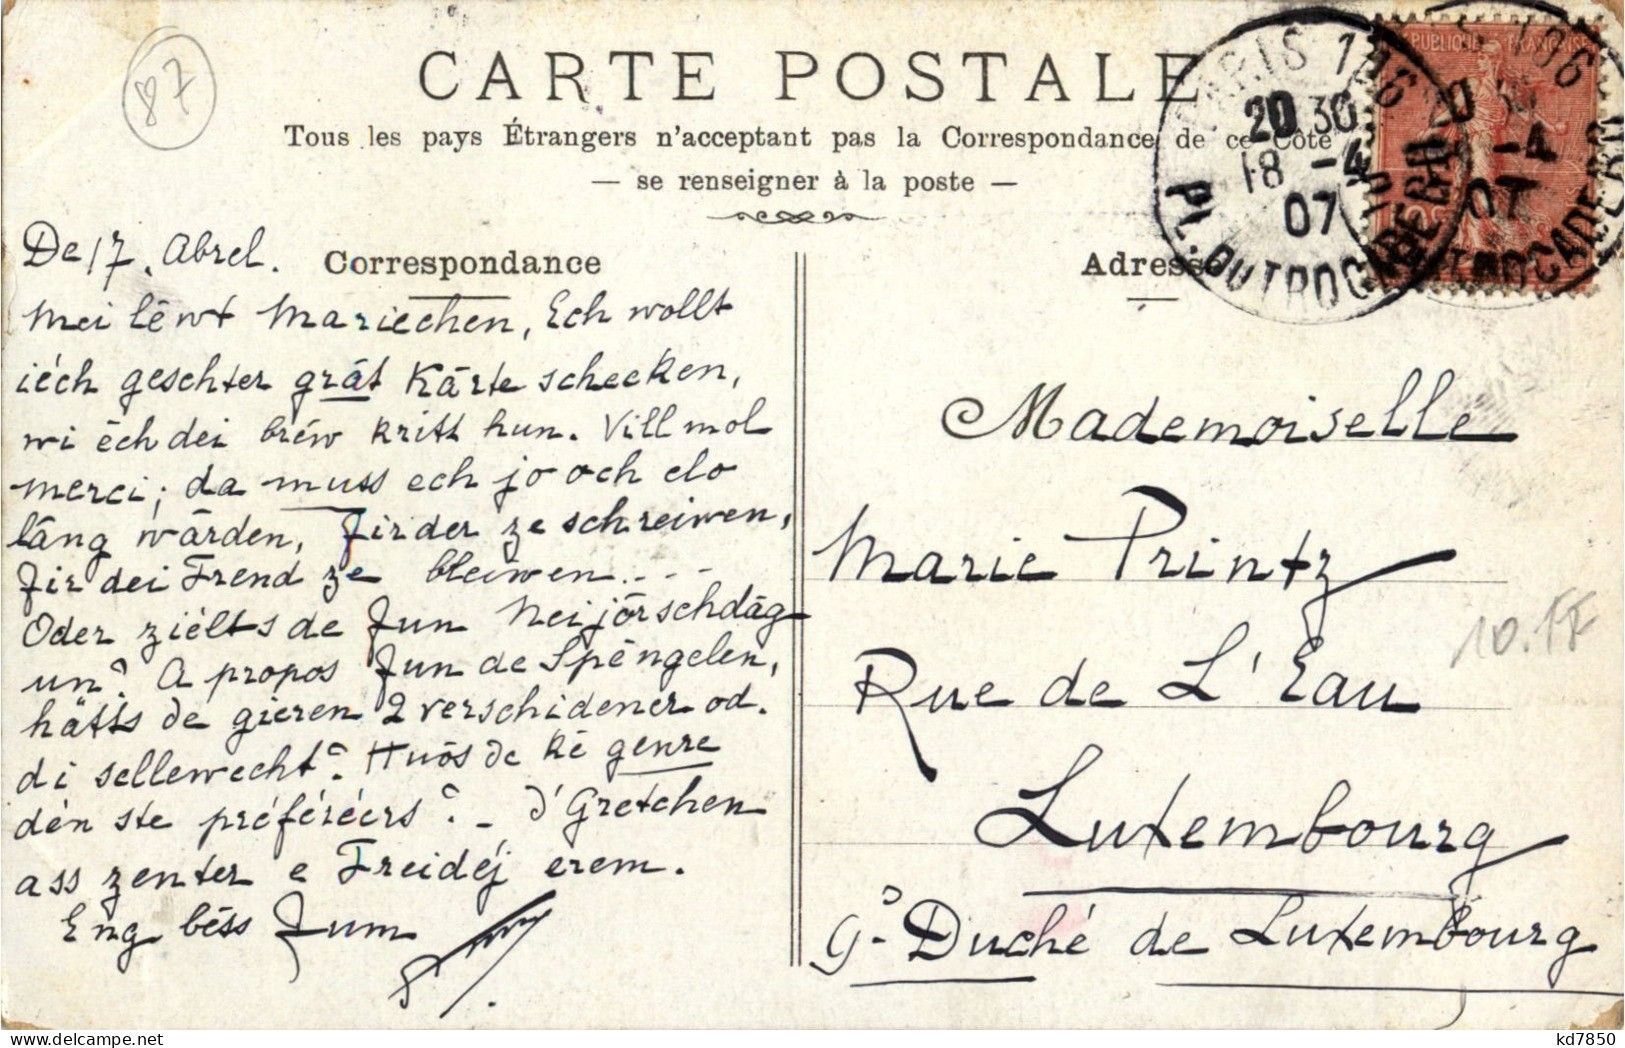 87
CARTE POSTALE
Tous les pays Étrangers n'acceptant pas la Correspondance de ce Côté
— se renseigner à la poste —
PARIS 106
20 30
18 -4
07
PL. DU TROCADERO
RÉPUBLIQUE FRANÇAISE
106
-4
07
TROCADERO
Correspondance
De 17. Abrel.
Mei lēwt Mariechen, Ech wollt
iéch geschter grāt Kārte schecken,
wi ēch dei brēw kritt hun. Vill mol
merci; da muss ech jo och elo
lāng wārden, fir der ze schreiwen,
fir dei Frend ze bleiwen....
Oder ziélts de fun Neijōrschdāg
un? A propos fun de Spēngelen,
hätts de gieren 2 verschidener od.
di sellewecht? Huōs de kē genre
dén s'te préféréers? - d'Gretchen
ass zenter e Freidéj erem.
Eng bēss fum
Adresse
Mademoiselle
Marie Printz
Rue de L'Eau
Luxembourg
Gᵈ-Duché de Luxembourg
kd7850